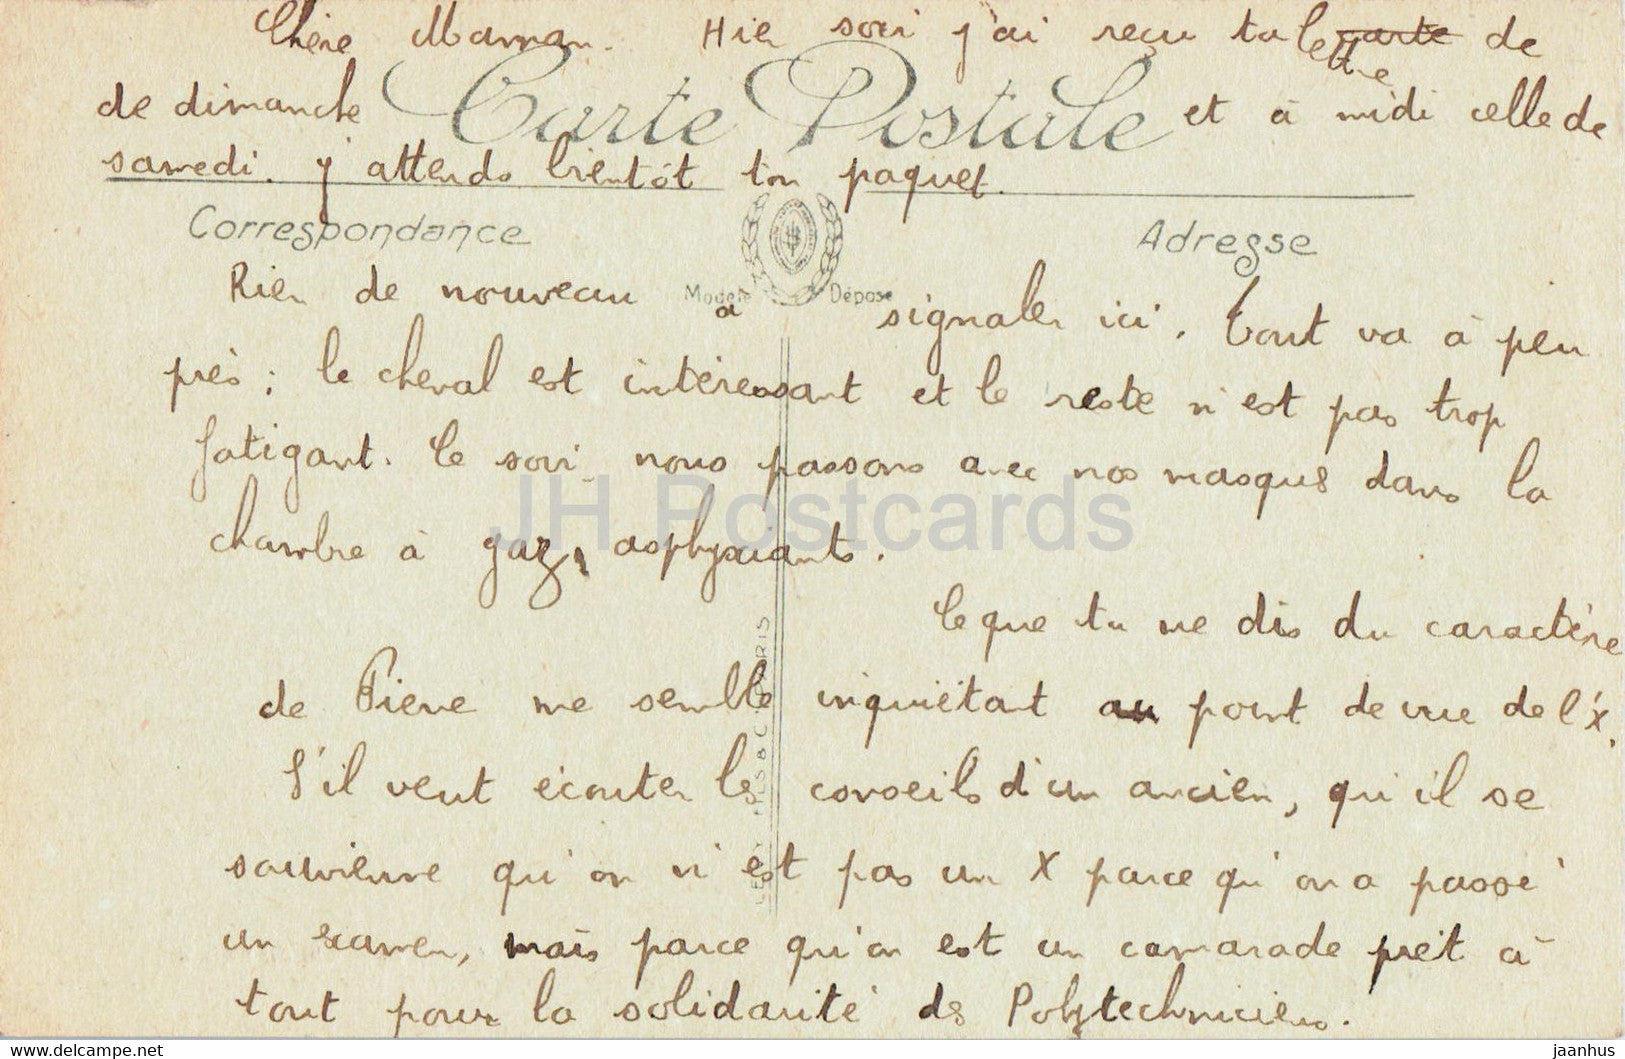 Chère Maman. Hier soir j'ai reçu ta carte lettre de
de dimanche Carte Postale et à midi celle de
samedi. j'attends bientôt ton paquet.
Correspondance Adresse
Rien de nouveau à signaler ici. Tout va à peu
Modèle Déposé
près ; le cheval est intéressant et le reste n'est pas trop
fatigant. Ce soir nous passons avec nos masques dans la
chambre à gaz asphyxiants.
JH Postcards
Ce que tu me dis du caractère
de Pierre me semble inquiétant au point de vue de l'X.
S'il veut écouter les conseils d'un ancien, qu'il se
souvienne qu'on n'est pas un X parce qu'on a passé
un examen, mais parce qu'on est un camarade prêt à
tout pour la solidarité des Polytechniciens.
PARIS
www.delcampe.net
jaanhus